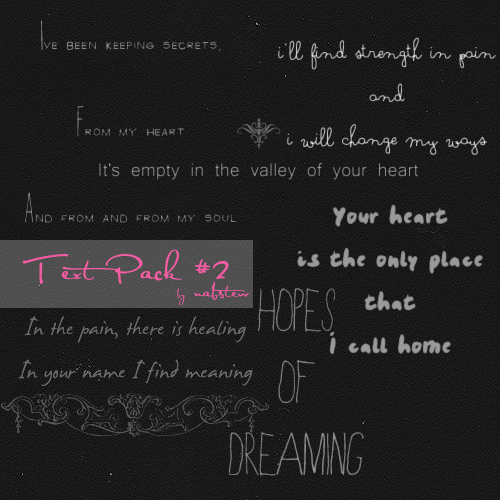 I've been keeping secrets,
From my heart
And from and from my soul
i'll find strength in pain
and
i will change my ways
It's empty in the valley of your heart
Your heart
is the only place
that
I call home
Text Pack #2
by nabstew
In the pain, there is healing
In your name I find meaning
HOPES
OF
DREAMING